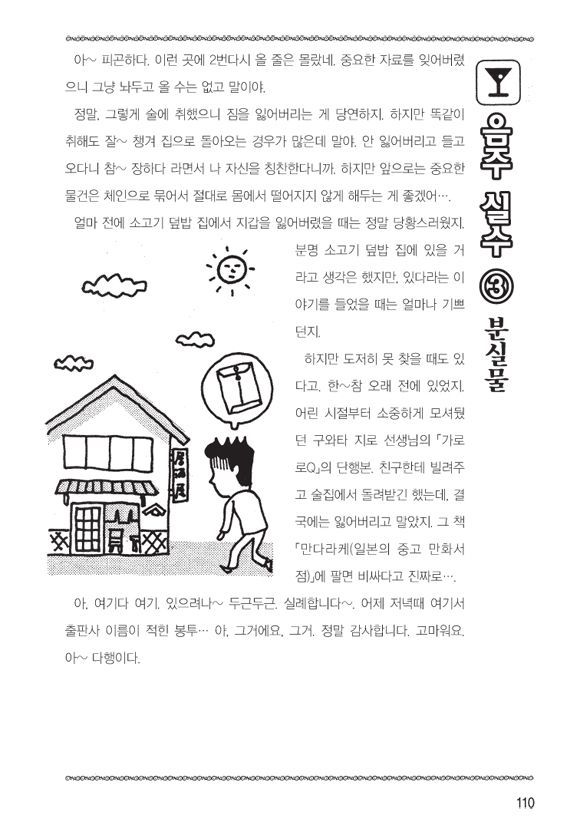 음주 실수 ③ 분실물
아～ 피곤하다. 이런 곳에 2번다시 올 줄은 몰랐네. 중요한 자료를 잊어버렸
으니 그냥 놔두고 올 수는 없고 말이야.
정말, 그렇게 술에 취했으니 짐을 잃어버리는 게 당연하지. 하지만 똑같이
취해도 잘～ 챙겨 집으로 돌아오는 경우가 많은데 말야. 안 잃어버리고 들고
오다니 참～ 장하다 라면서 나 자신을 칭찬한다니까. 하지만 앞으로는 중요한
물건은 체인으로 묶어서 절대로 몸에서 떨어지지 않게 해두는 게 좋겠어….
얼마 전에 소고기 덮밥 집에서 지갑을 잃어버렸을 때는 정말 당황스러웠지.
분명 소고기 덮밥 집에 있을 거
라고 생각은 했지만, 있다라는 이
야기를 들었을 때는 얼마나 기쁘
던지.
하지만 도저히 못 찾을 때도 있
다고. 한～참 오래 전에 있었지.
어린 시절부터 소중하게 모셔뒀
던 구와타 지로 선생님의 「가로
로Q」의 단행본. 친구한테 빌려주
고 술집에서 돌려받긴 했는데, 결
국에는 잃어버리고 말았지. 그 책
「만다라케(일본의 중고 만화서
점)」에 팔면 비싸다고 진짜로….
居酒屋
아, 여기다 여기. 있으려나～ 두근두근. 실례합니다～. 어제 저녁때 여기서
출판사 이름이 적힌 봉투… 야, 그거에요, 그거. 정말 감사합니다. 고마워요.
아～ 다행이다.
110